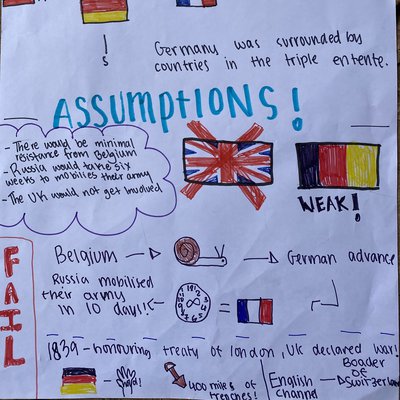 Germany was surrounded by
countries in the triple entente.
ASSUMPTIONS!
- There would be minimal
resistance from Belgium
- Russia would take six
weeks to mobilies their army
- The UK would not get involved
WEAK!
FAIL
Belgium
German advance
Russia mobilised
their army
in 10 days!
=
1839 - honouring treaty of london, UK declared war!
400 miles of
trenches!
English
channel
Boader
of
Switzerland